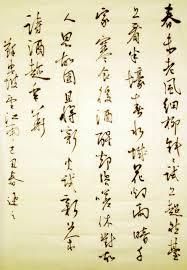 春未老風細柳斜斜試上超然臺
上看半壕春水一城花烟雨暗千
家寒食後酒醒却咨嗟休對故
人思故國且將新火試新茶
詩酒趁年華
東坡望江南己丑春